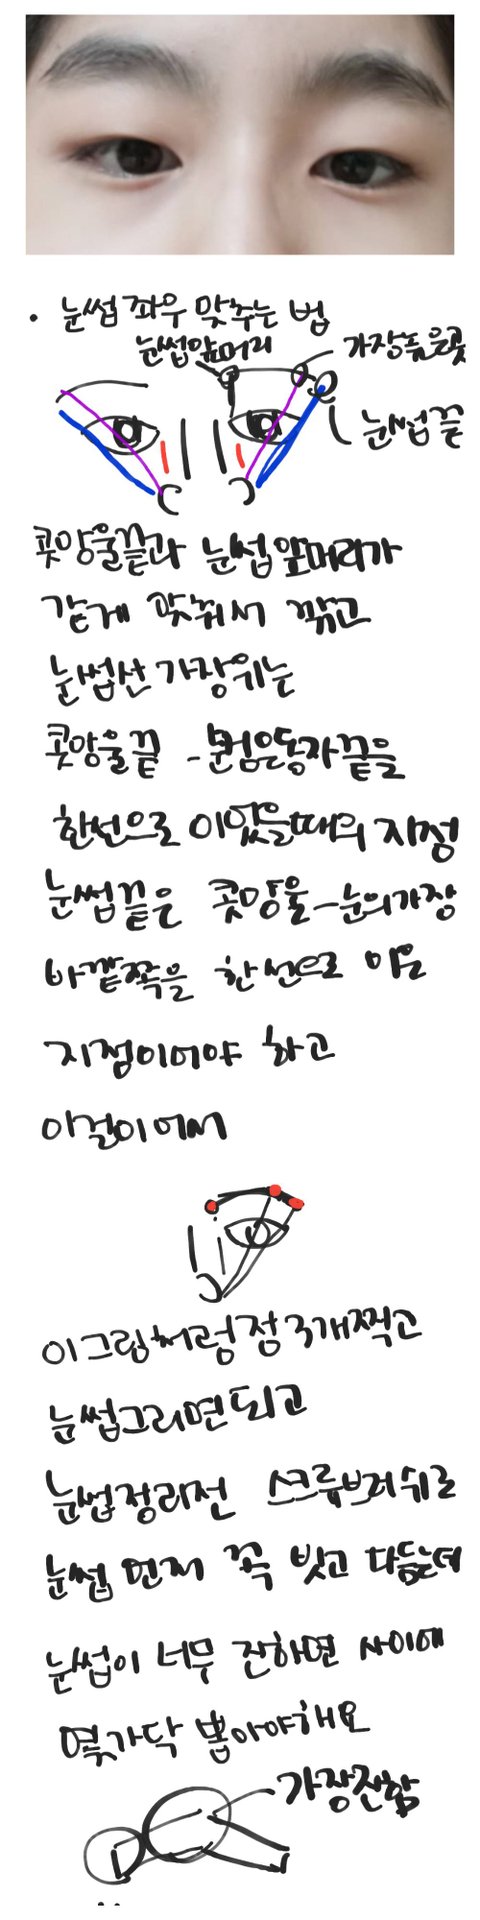 · 눈썹 좌우 맞추는 법
눈썹앞머리
가장높은곳
눈썹끝
콧망울끝과 눈썹앞머리가
같게 맞춰서 깎고
눈썹산 가장위는
콧망울끝 - 검은동자끝을
한선으로 이었을때의 지점
눈썹끝은 콧망울-눈의가장
바깥쪽을 한선으로 이은
지점이어야 하고
이걸이어서
이그림처럼점3개찍고
눈썹그리면되고
눈썹정리전 스크류브러쉬로
눈썹 먼저 꼭 빗고 다듬는데
눈썹이 너무 진하면 사이에
몇가닥 뽑아야해요
가장진함